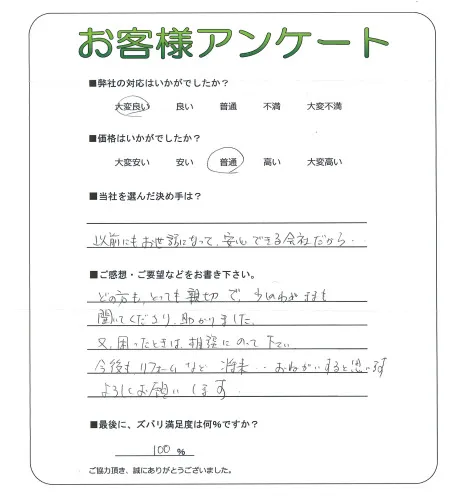 お客様アンケート
■弊社の対応はいかがでしたか？
大変良い 良い 普通 不満 大変不満
■価格はいかがでしたか？
大変安い 安い 普通 高い 大変高い
■当社を選んだ決め手は？
以前にもお世話になって、安心できる会社だから。
■ご感想・ご要望などをお書き下さい。
どの方も、とても親切で、うちのわがままも
聞いてくださり、助かりました。
又、困ったときは、相談にのって下さい。
今後もリフォームなど 将来‥おねがいすると思います
よろしくお願いします。
■最後に、ズバリ満足度は何%ですか？
100 %
ご協力頂き、誠にありがとうございました。